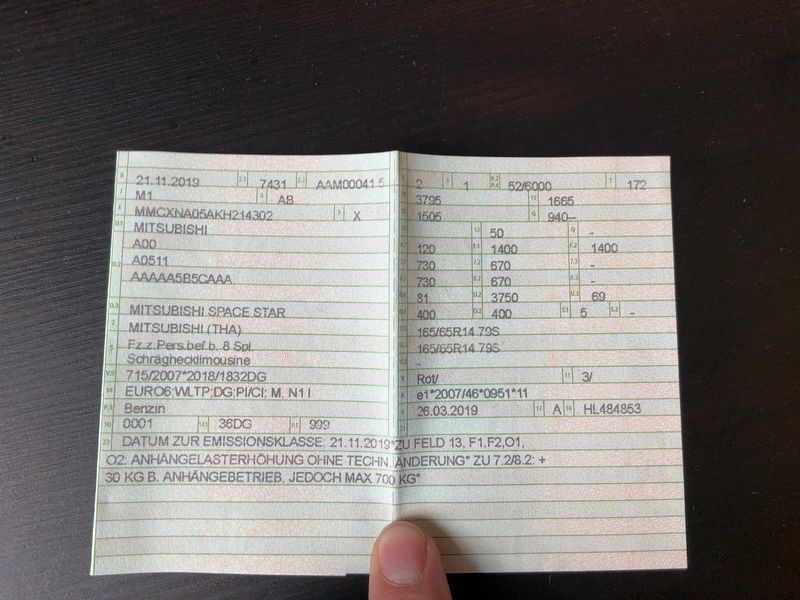 B 21.11.2019 2.1 7431 2.2 AAM00041 5
J M1 4 AB
E MMCXNA05AKH214302 3 X
D.1 MITSUBISHI
A00
D.2 A0511
AAAAA5B5CAAA
D.3 MITSUBISHI SPACE STAR
2 MITSUBISHI (THA)
5 Fz.z.Pers.bef.b. 8 Spl.
Schräghecklimousine
V.9 715/2007*2018/1832DG
14 EURO6;WLTP;DG;PI/CI; M, N1 I
P.3 Benzin
10 0001 14.1 36DG P.1 999
L 2 9 1 P.2 P.4 52/6000 T 172
18 3795 19 1665
20 1505 G 940–
13 50 Q -
V.7 120 F.1 1400 F.2 1400
7.1 730 7.2 670 7.3 -
8.1 730 8.2 670 8.3 -
U.1 81 U.2 3750 U.3 69
O.1 400 O.2 400 S.1 5 S.2 -
15.1 165/65R14 79S
15.2 165/65R14 79S
15.3 -
R Rot/ 11 3/
K e1*2007/46*0951*11
6 26.03.2019 17 A 16 HL484853
21
22 DATUM ZUR EMISSIONSKLASSE: 21.11.2019*ZU FELD 13, F1,F2,O1,
O2: ANHÄNGELASTERHÖHUNG OHNE TECHN. ÄNDERUNG* ZU 7.2/8.2: +
30 KG B. ANHÄNGEBETRIEB, JEDOCH MAX 700 KG*